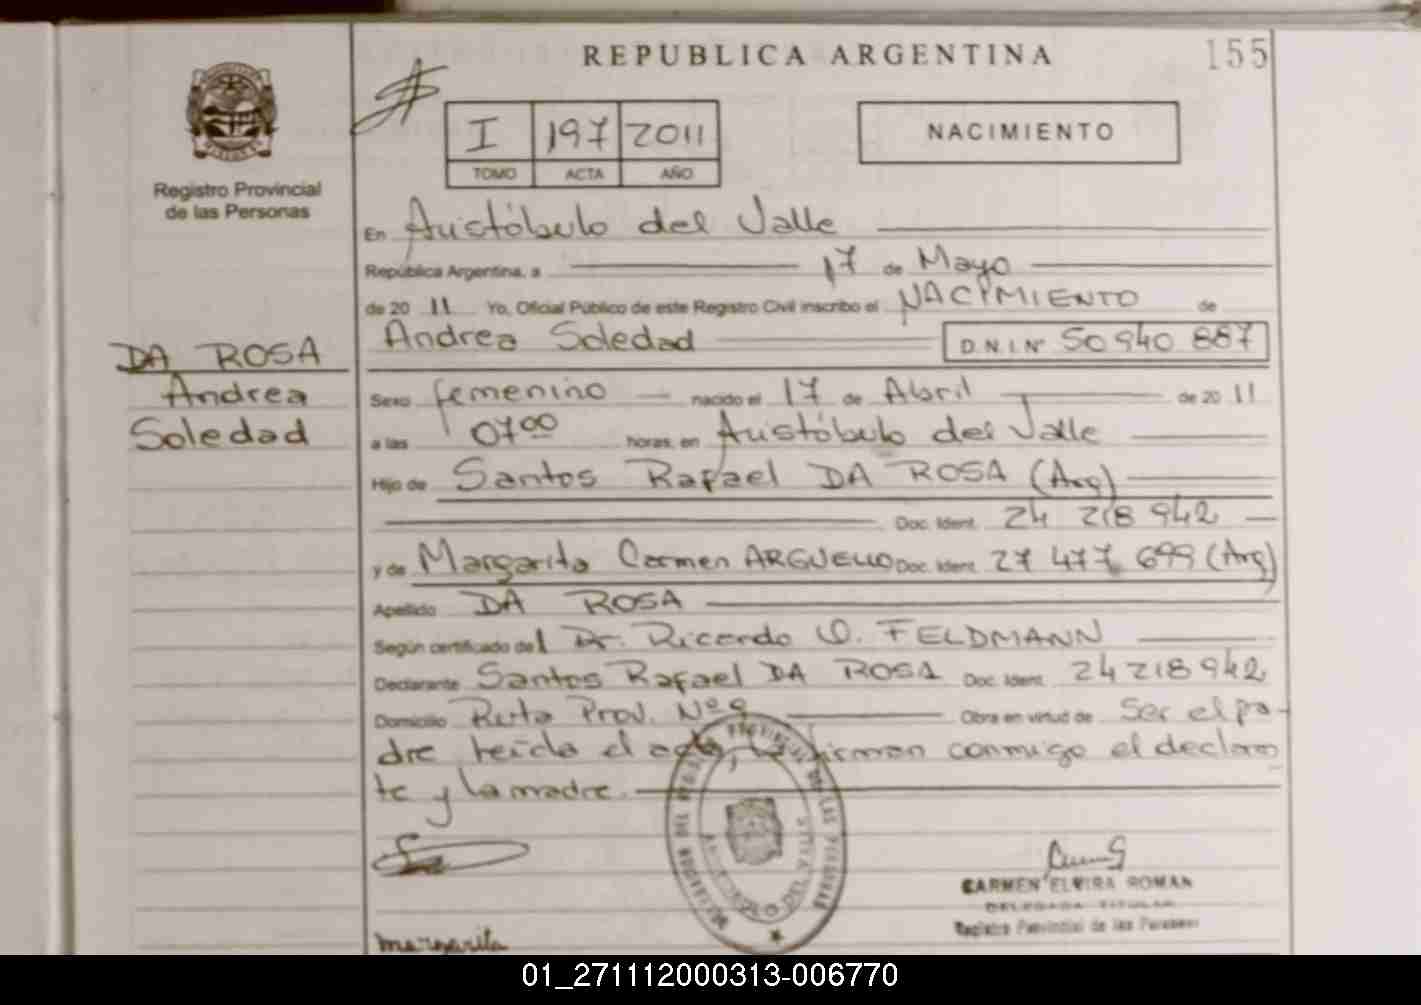 REPUBLICA ARGENTINA
155
I 197 2011
TOMO ACTA AÑO
NACIMIENTO
Registro Provincial
de las Personas
En Aristóbulo del Valle
República Argentina, a 17 de Mayo
de 20 11 Yo, Oficial Público de este Registro Civil inscribo el NACIMIENTO de
Andrea Soledad D.N.I Nº 50 940 887
DA ROSA
Andrea
Soledad
Sexo femenino nacido el 17 de Abril de 20 11
a las 07 00 horas, en Aristóbulo del Valle
Hijo de Santos Rafael DA ROSA (Arg)
Doc. Ident. 24 218 942
y de Margarita Carmen ARGUELLO Doc. Ident. 27 477 699 (Arg)
Apellido DA ROSA
Según certificado del Dr. Ricardo O. FELDMANN
Declarante Santos Rafael DA ROSA Doc. Ident. 24 218 942
Domicilio Ruta Prov. Nº 9 Obra en virtud de Ser el pa-
dre leída el acta, la firman conmigo el declaran
te y la madre.
CARMEN ELVIRA ROMAN
DELEGADA TITULAR
Registro Provincial de las Personas
Margarita
01_271112000313-006770